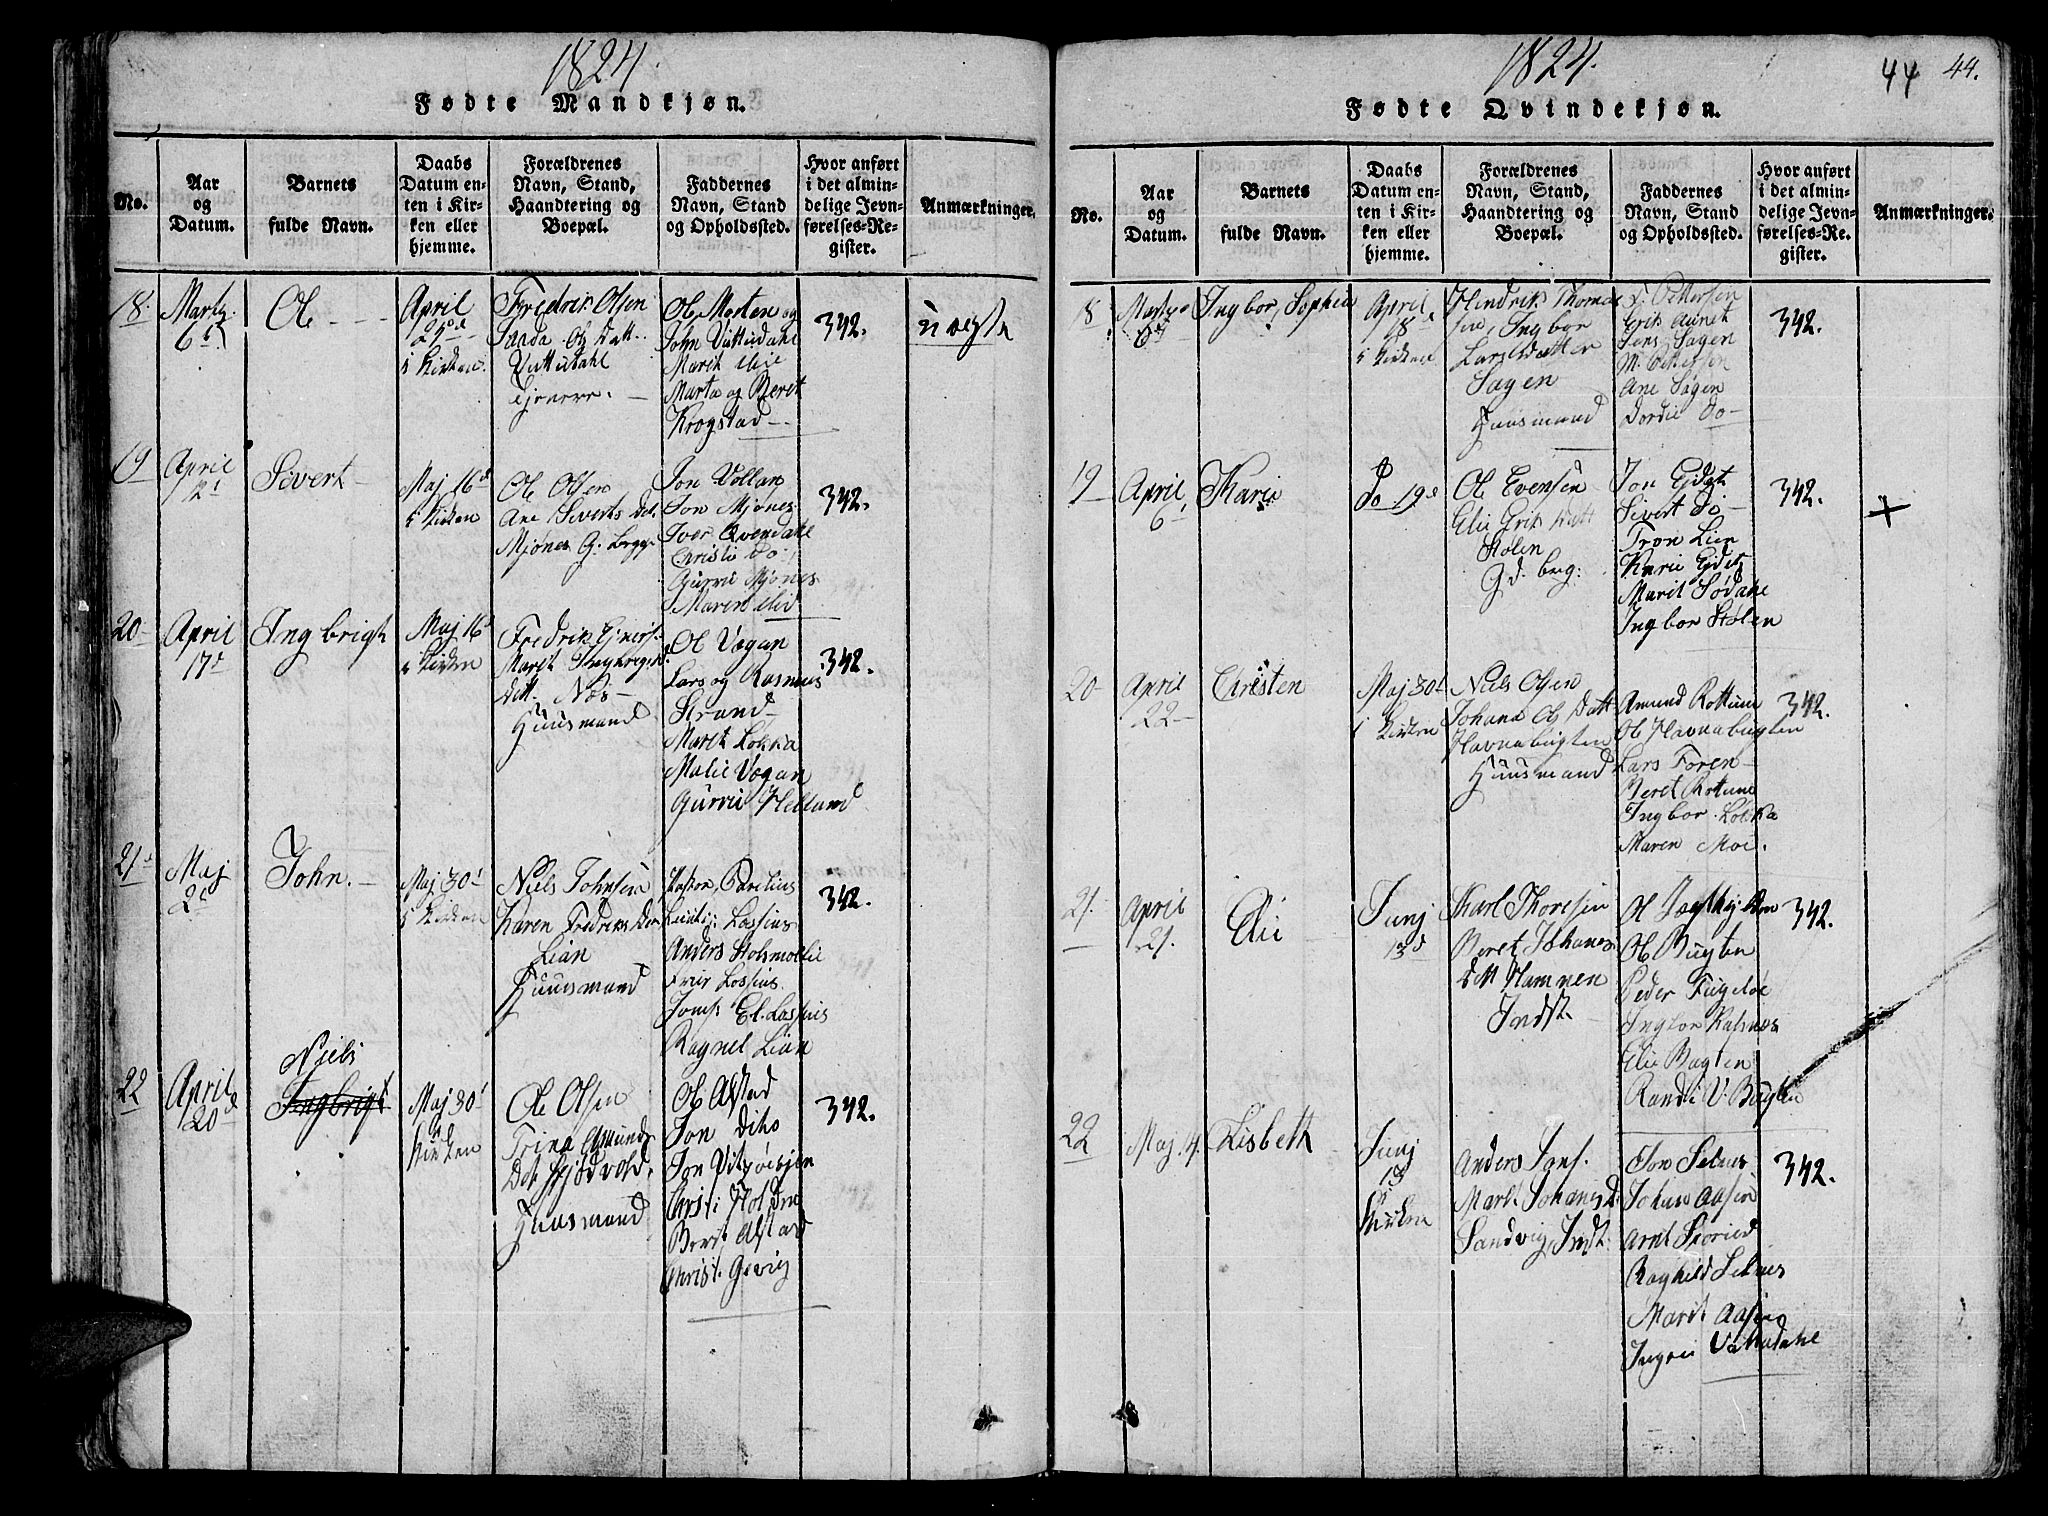 1824.
Fødte Mandkjøn.
No.
Aar
og
Datum.
Barnets
fulde Navn.
Daabs
Datum en-
ten i Kir-
ken eller
hjemme.
Forældrenes
Navn, Stand,
Haandtering og
Boepæl.
Faddernes
Navn, Stand
og Opholdssted.
Hvor anført
i det almin-
delige Jevn-
førelses-Re-
gister.
Anmærkninger.
18.
Martz
6
Ole
April
i Kirken.
Fredrik Olsen
Ol Datt.
Ole Morten og
John Vuttudahl
Marit
Marta og Beret
Krogstad
342.
uægte
19
April
2
Sivert
Maj 16d
i Kirken
Ole Olsen
Ane Siverts Dat.
Mjønes G. brygg
Jon Vollan
Jon Mjønes
Iver Qvendahl
Christi do
Gurru Mjønes
Maren
342.
20
April
17d
Ingbrigt
Maj 16d
i Kirken
Fredrik
Maret Ingbrigts
Dtt. Næs
Huusmand
Ol Vægan
Lars og Rasmus
Strand
Maret Løkka
Malie Vægan
Gurru Helland
342.
21
Maj
2d
John.
Maj 30
i Kirken
Niels Johnsen
Karen Fredriks Datr
Lian
Huusmand
Lossius
Anders Stolsmolie
Lossius
El. Lossius
Ragnel Lian
342.
22
April
20d
Niels
Ingbrigt
Maj 30
Kirken
Ole Olsen
Trina Amunds
Dot.
Huusmand
Ol Alstad
Jon dito
Jon
Beret Alstad
Christi Gievig
342.
1824.
44 44.
Fødte Qvindekjøn.
No.
Aar
og
Datum.
Barnets
fulde Navn.
Daabs
Datum en-
ten i Kir-
ken eller
hjemme.
Forældrenes
Navn, Stand,
Haandtering og
Boepæl.
Faddernes
Navn, Stand
og Opholdssted.
Hvor anført
i det almin-
delige Jevn-
førelses-Re-
gister.
Anmærkninger.
18
Martz
Ingbor Sophia
April
18
i Kirken
Hendrik Thomas
sen, Ingbor
Larsdatter
Sagen
Huusmand
Pettersen
Erik Aunet
Jens Sagen
M. Pettersen
Ane Sagen
Dordie do
342.
19
April
6
Karie
Do 19d
Ole Evensen
Elie Erik Datt
Stølen
Gd. brg:
Jon Eidet
Sivert do
Tron Lien
Karie Eidet
Marit Sødahl
Ingbor Stølen
342.
+
20
April
22
Christen
Maj 30
i Kirken
Niels Olsen
Johana Ol Datt
Havnabugten
Huusmand
Amund Rottum
Ol Havnabugten
Lars Foren
Beret Rottum
Ingbor Løkka
Maren Moe.
342.
21.
April
21.
Elii
Junj
13d
Karl Thoresen
Beret Johanes
Dtt Hamnen
Indst.
Ol
Ol Bugten
Peder Fugeløe
Ingbor
Elie Bugten
Randi V. Bugten
342.
22
Maj 4.
Lisbeth
Junj
13
Kirken
Anders Jons.
Marit Johanes D
Sandvig Indst.
Jon Selnes
Johan Aasen
Arnt
Raghild Selnes
Marit Aasen
Ingrie Vuttudahl
342.